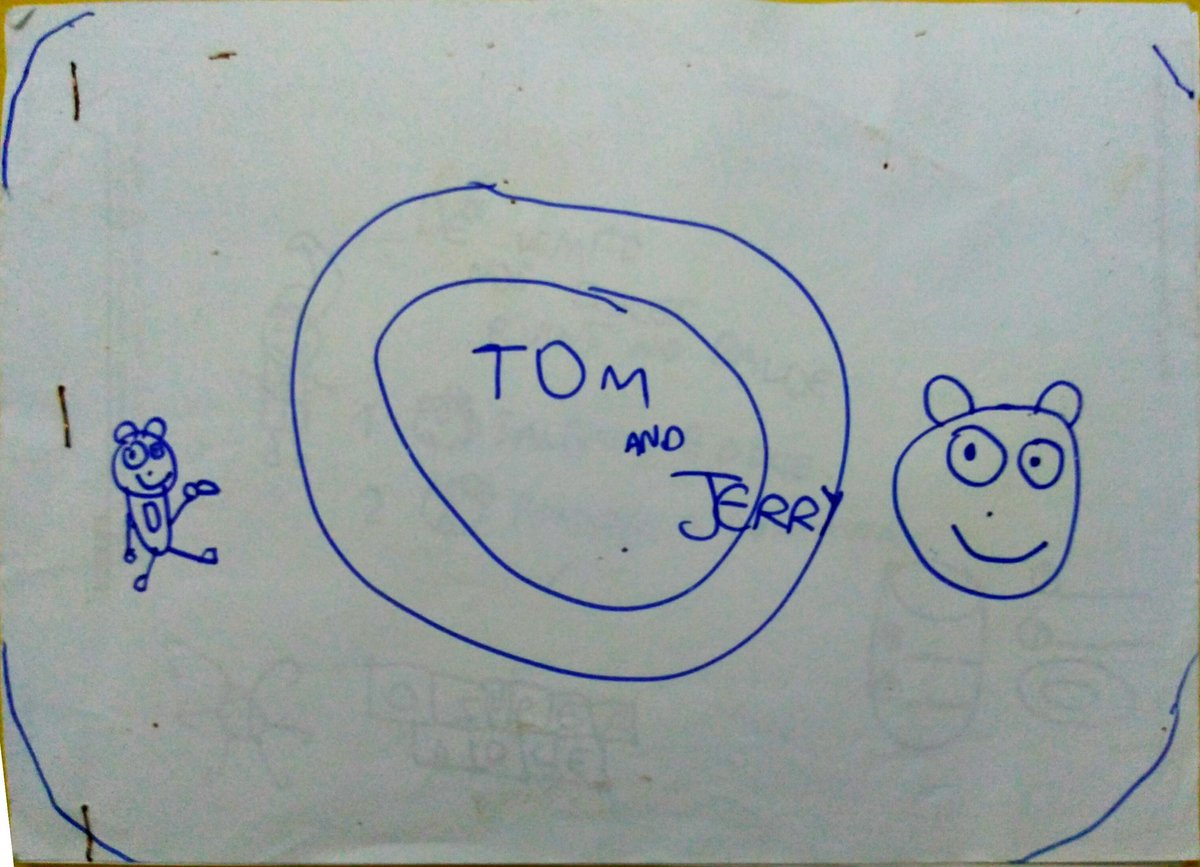 TOM
AND
JERRY